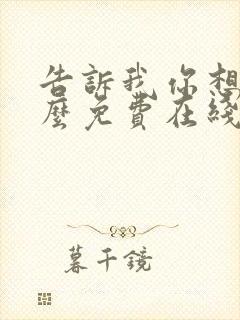 告訴我 你想
麼免費在綫
暮千鏡